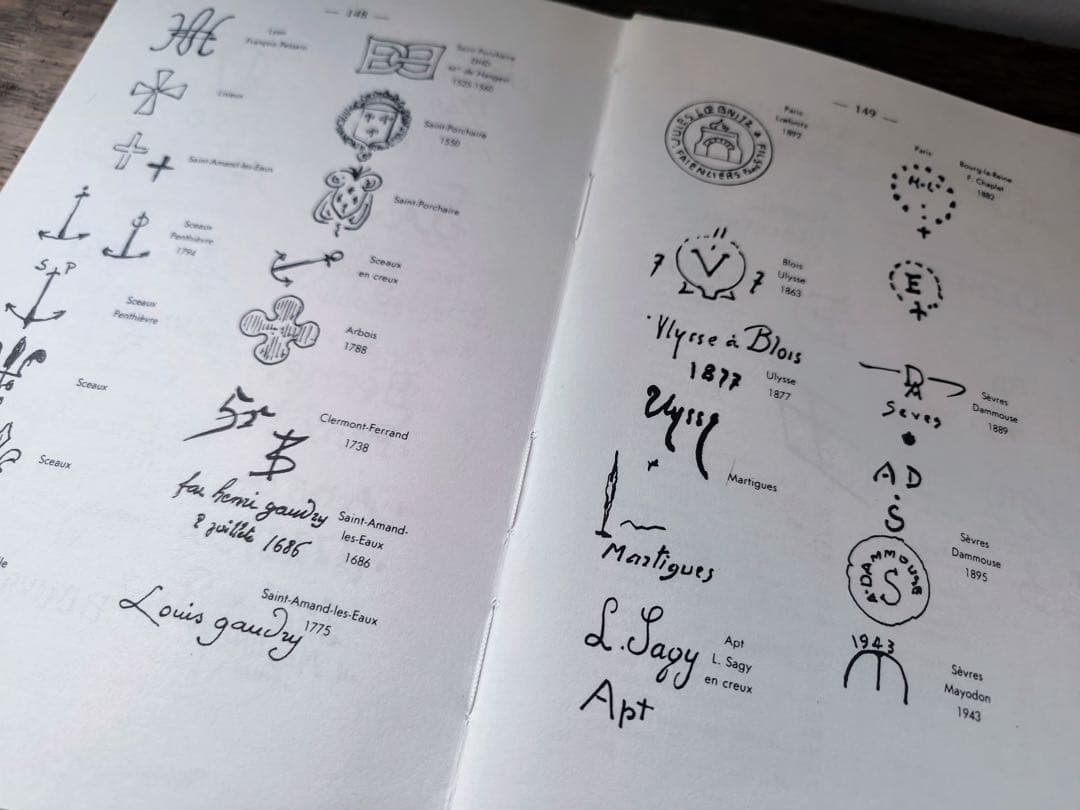 — 148 —
Saint-Porchaire
1525-1560
Lisieux
Saint-Porchaire
1550
Saint-Amand-les-Eaux
Saint-Porchaire
Sceaux
Penthièvre
1794
Sceaux
en creux
S P
Sceaux
Penthièvre
Arbois
1788
Sceaux
Clermont-Ferrand
1738
Sceaux
fax henri gaudry
2 juillite 1686
Saint-Amand-
les-Eaux
1686
Louis gaudry
Saint-Amand-les-Eaux
1775
— 149 —
JULES LŒBNITZ
FILS
FAIENCIERS
Paris
Lœbnitz
Paris
Bourg-la-Reine
F. Chaplet
1882
V
7 7
Blois
Ulysse
1863
E
Ulysse à Blois
1877
Ulysse
1877
Ulysse
Martigues
Martigues
L. Sagy
Apt
Apt
L. Sagy
en creux
Sèvres
Sèvres
Dammouse
1889
A D
S
A. DAMMOUSE
S
Sèvres
Dammouse
1895
1943
Sèvres
Mayodon
1943